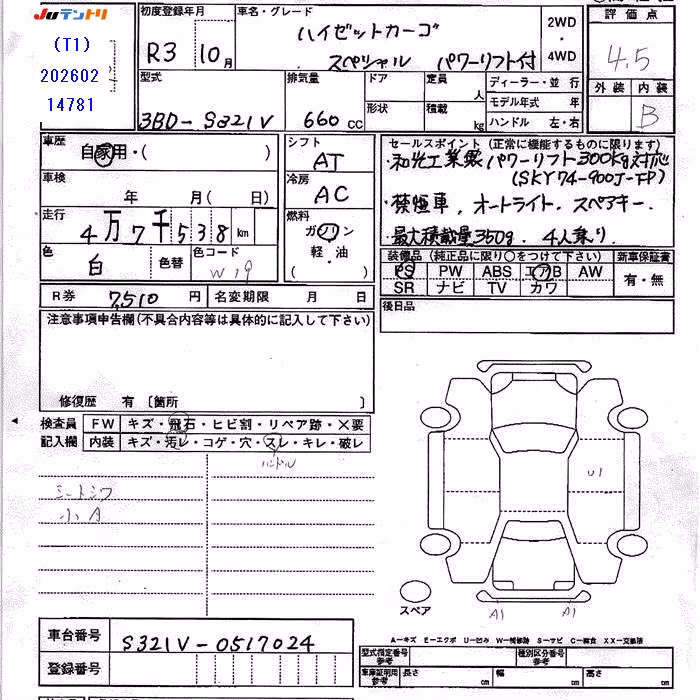 Juテントリ
(T1)
202602
14781
初度登録年月
R3 10月
車名・グレード
ハイゼットカーゴ
スペシャル パワーリフト付
2WD
・
4WD
評価点
4.5
外装 内装
B
型式
3BD-S321V
排気量
660 cc
ドア
形状
定員
人
積載
kg
ディーラー・並行
モデル年式 年
ハンドル 左・右
車歴
自家用・( )
車検
年 月( 日)
走行
4万7千538km
色
白
色替
色コード
W19
シフト
AT
冷房
AC
燃料
ガソリン
軽・油
( )
セールスポイント (正常に機能するものに限ります)
・和光工業製 パワーリフト300kg対応
(SKY74-900J-FP)
・禁煙車、オートライト、スペアキー.
・最大積載量350g. 4人乗り
装備品(純正品に限り○をつけて下さい)
PS PW ABS エアB AW
SR ナビ TV カワ
新車保証書
有・無
R券 7,510 円
名変期限 月 日
後日品
注意事項申告欄(不具合内容等は具体的に記入して下さい)
修復歴 有 〔箇所 〕
検査員
記入欄
FW キズ・飛石・ヒビ割・リペア跡・×要
内装 キズ・汚レ・コゲ・穴・スレ・キレ・破レ
ハンドル
シートシワ
小A
U1
スペア
A1 A1
A-キズ E-エクボ U-凹み W-補修跡 S-サビ C-腐食 XX-交換済
車台番号 S321V-0517024
登録番号
型式指定番号
参考
種別区分番号
参考
車庫証明用
参考
長さ cm
幅 cm
高さ cm